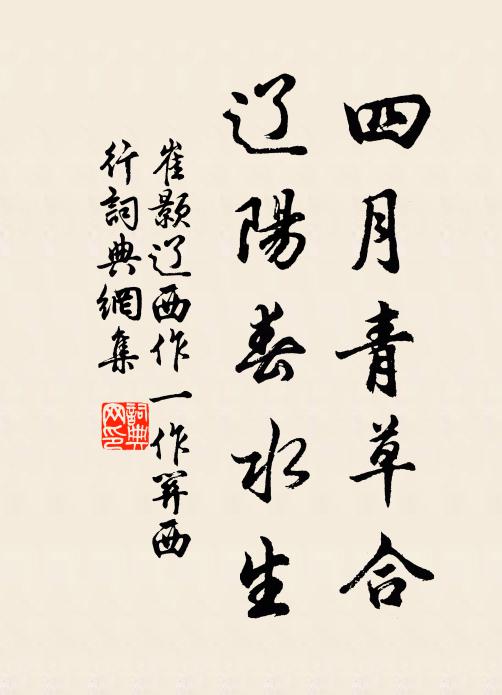 四月青草合
辽陽春水生
崔顥辽西作一作關西
行詞典網集
詞典
网印